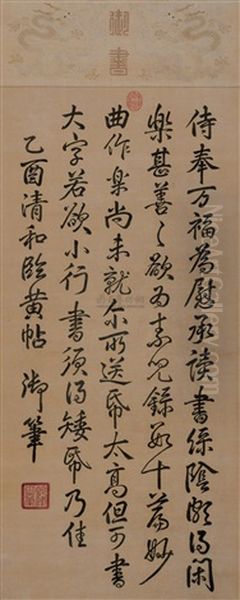 御書
侍奉万福為慰承读書綠陰頗得閑
樂甚善〻欲为素児錄数十篇妙
曲作楽尚未就尔所送帋太高但可書
大字若欲小行書須得矮帋乃佳
乙酉清和臨黄帖 御筆